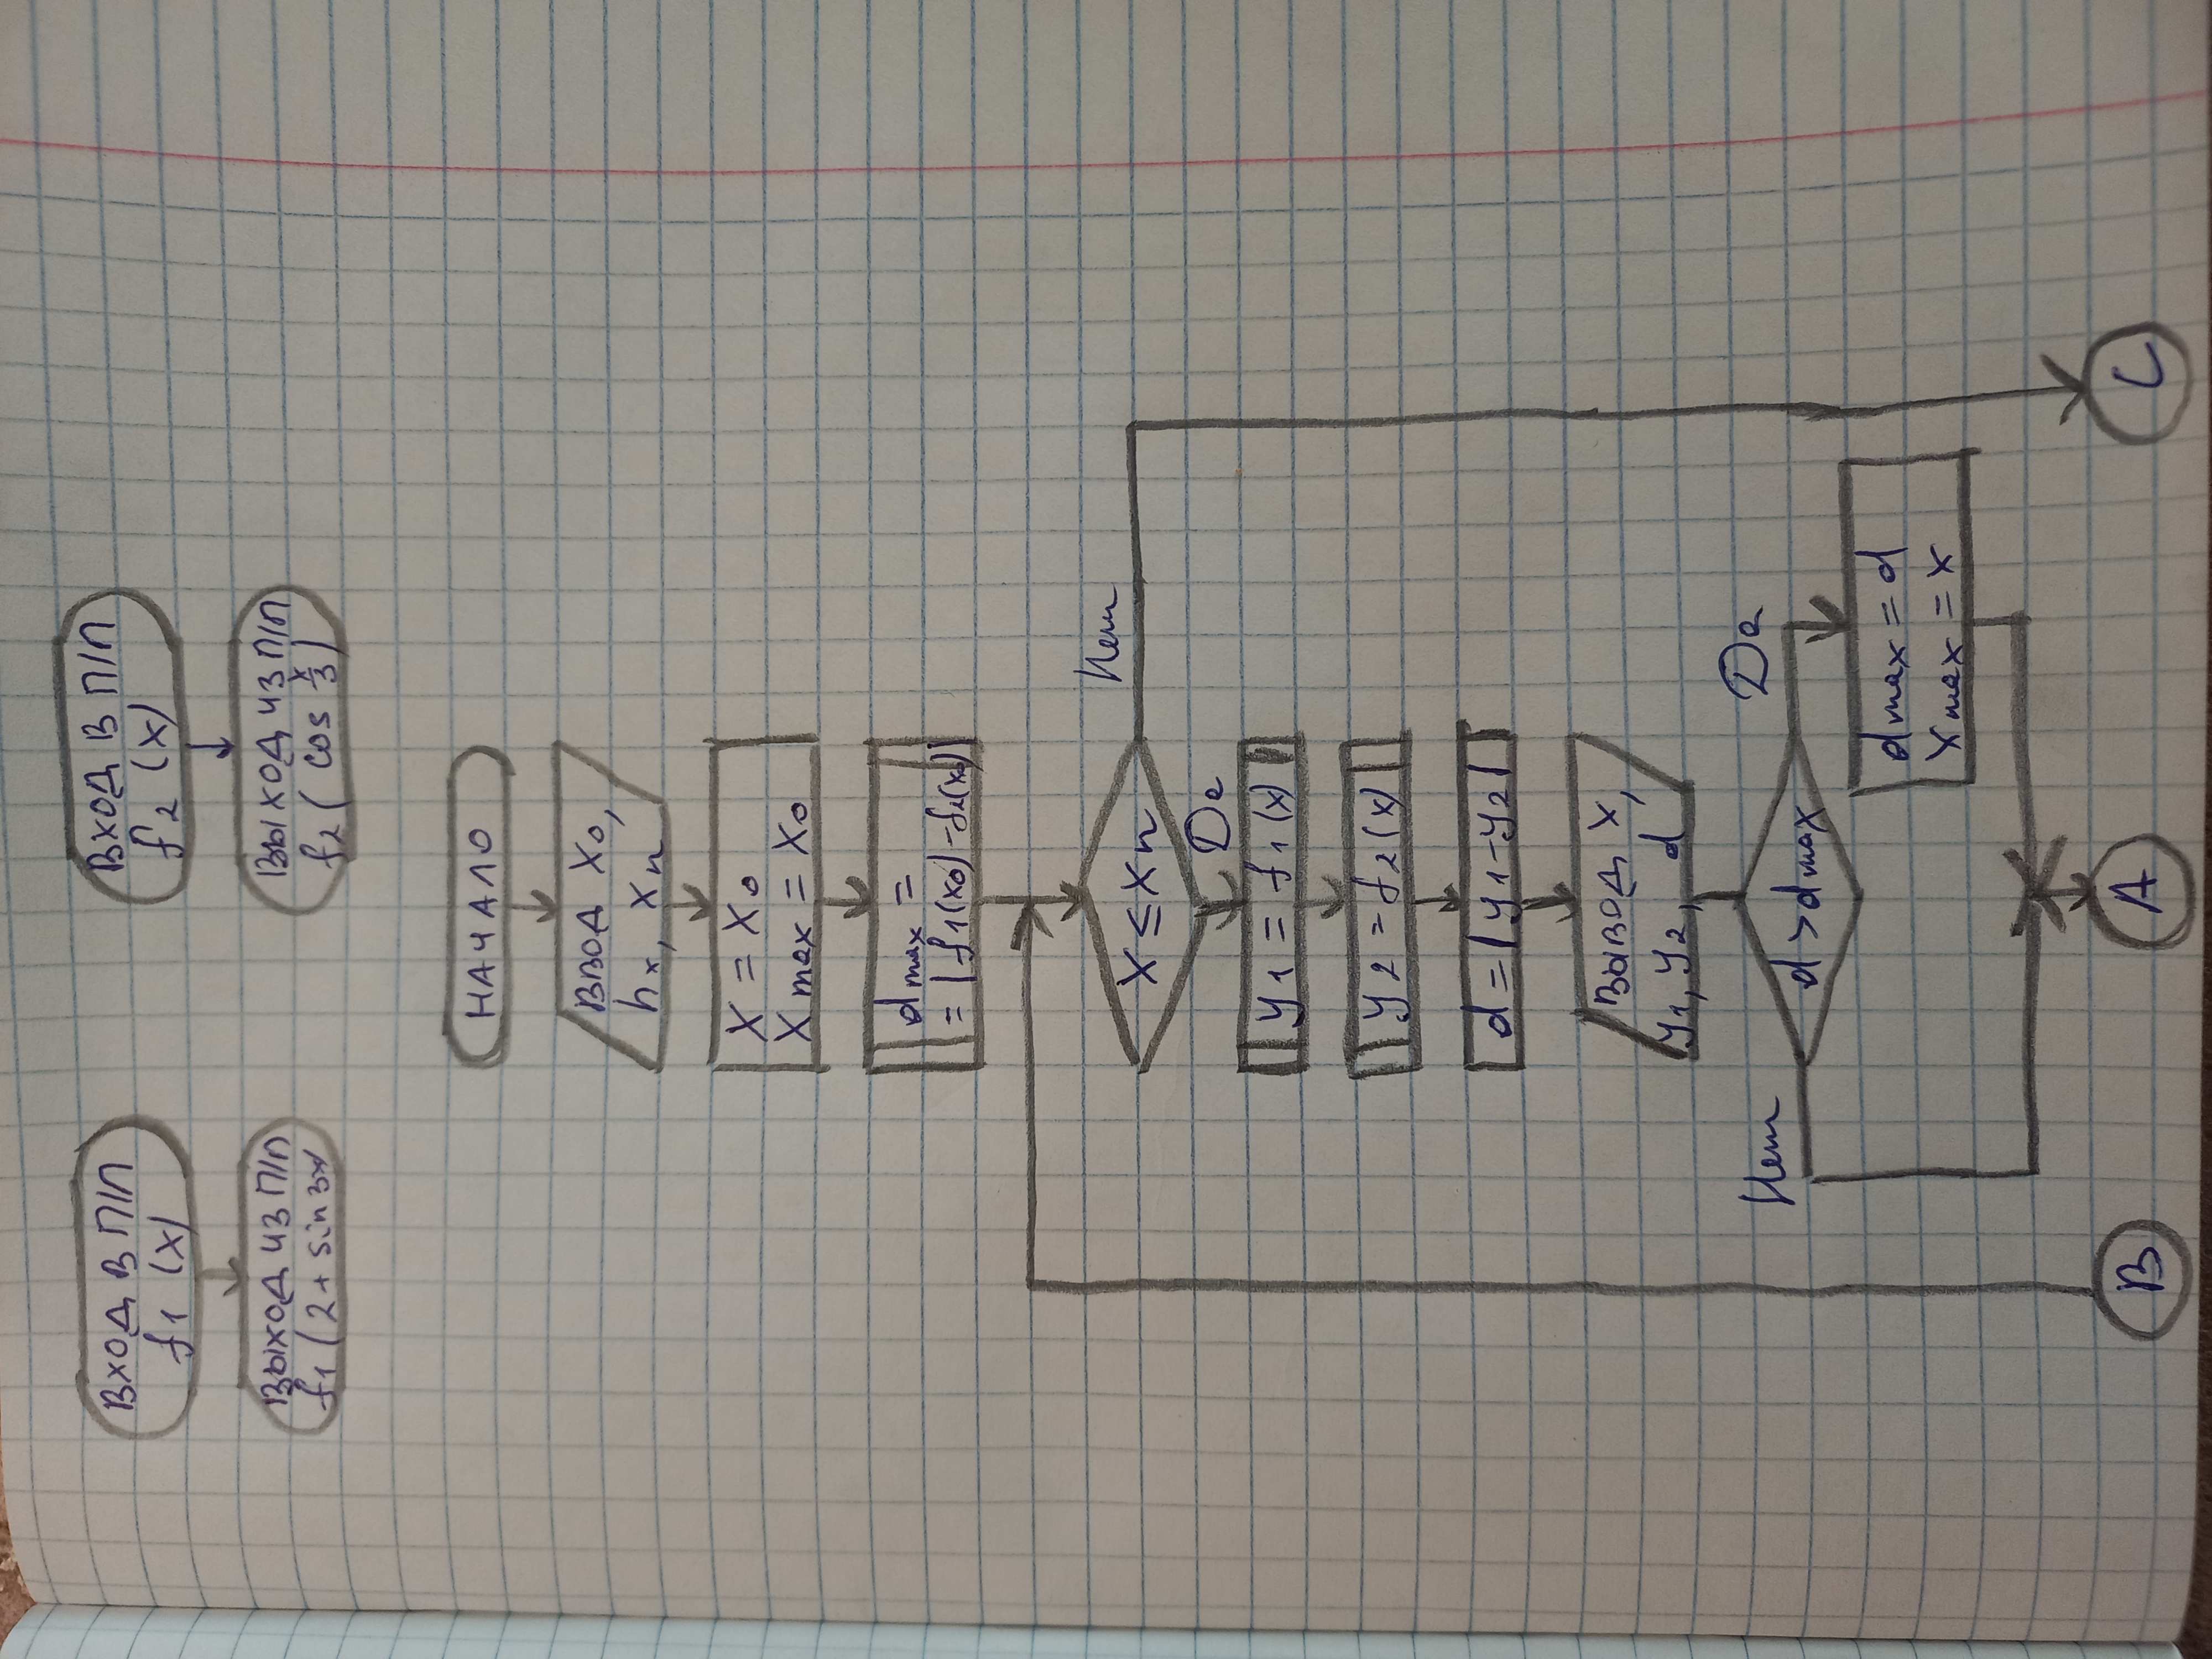 ВХОД В П/П
f1 (x)
ВЫХОД ИЗ П/П
f1 (2+ sin 3x)
ВХОД В П/П
f2 (x)
ВЫХОД ИЗ П/П
f2 ( cos x/3)
НАЧАЛО
ВВОД X0,
hx, Xn
X = X0
Xmax = X0
dmax =
= |f1(x0)-f2(x0)|
X ≤ Xn
Нет
Да
y1 = f1(x)
y2 = f2(x)
d = |y1-y2|
ВЫВОД X,
y1, y2, d
Нет
d > dmax
Да
dmax = d
xmax = x
B
A
C